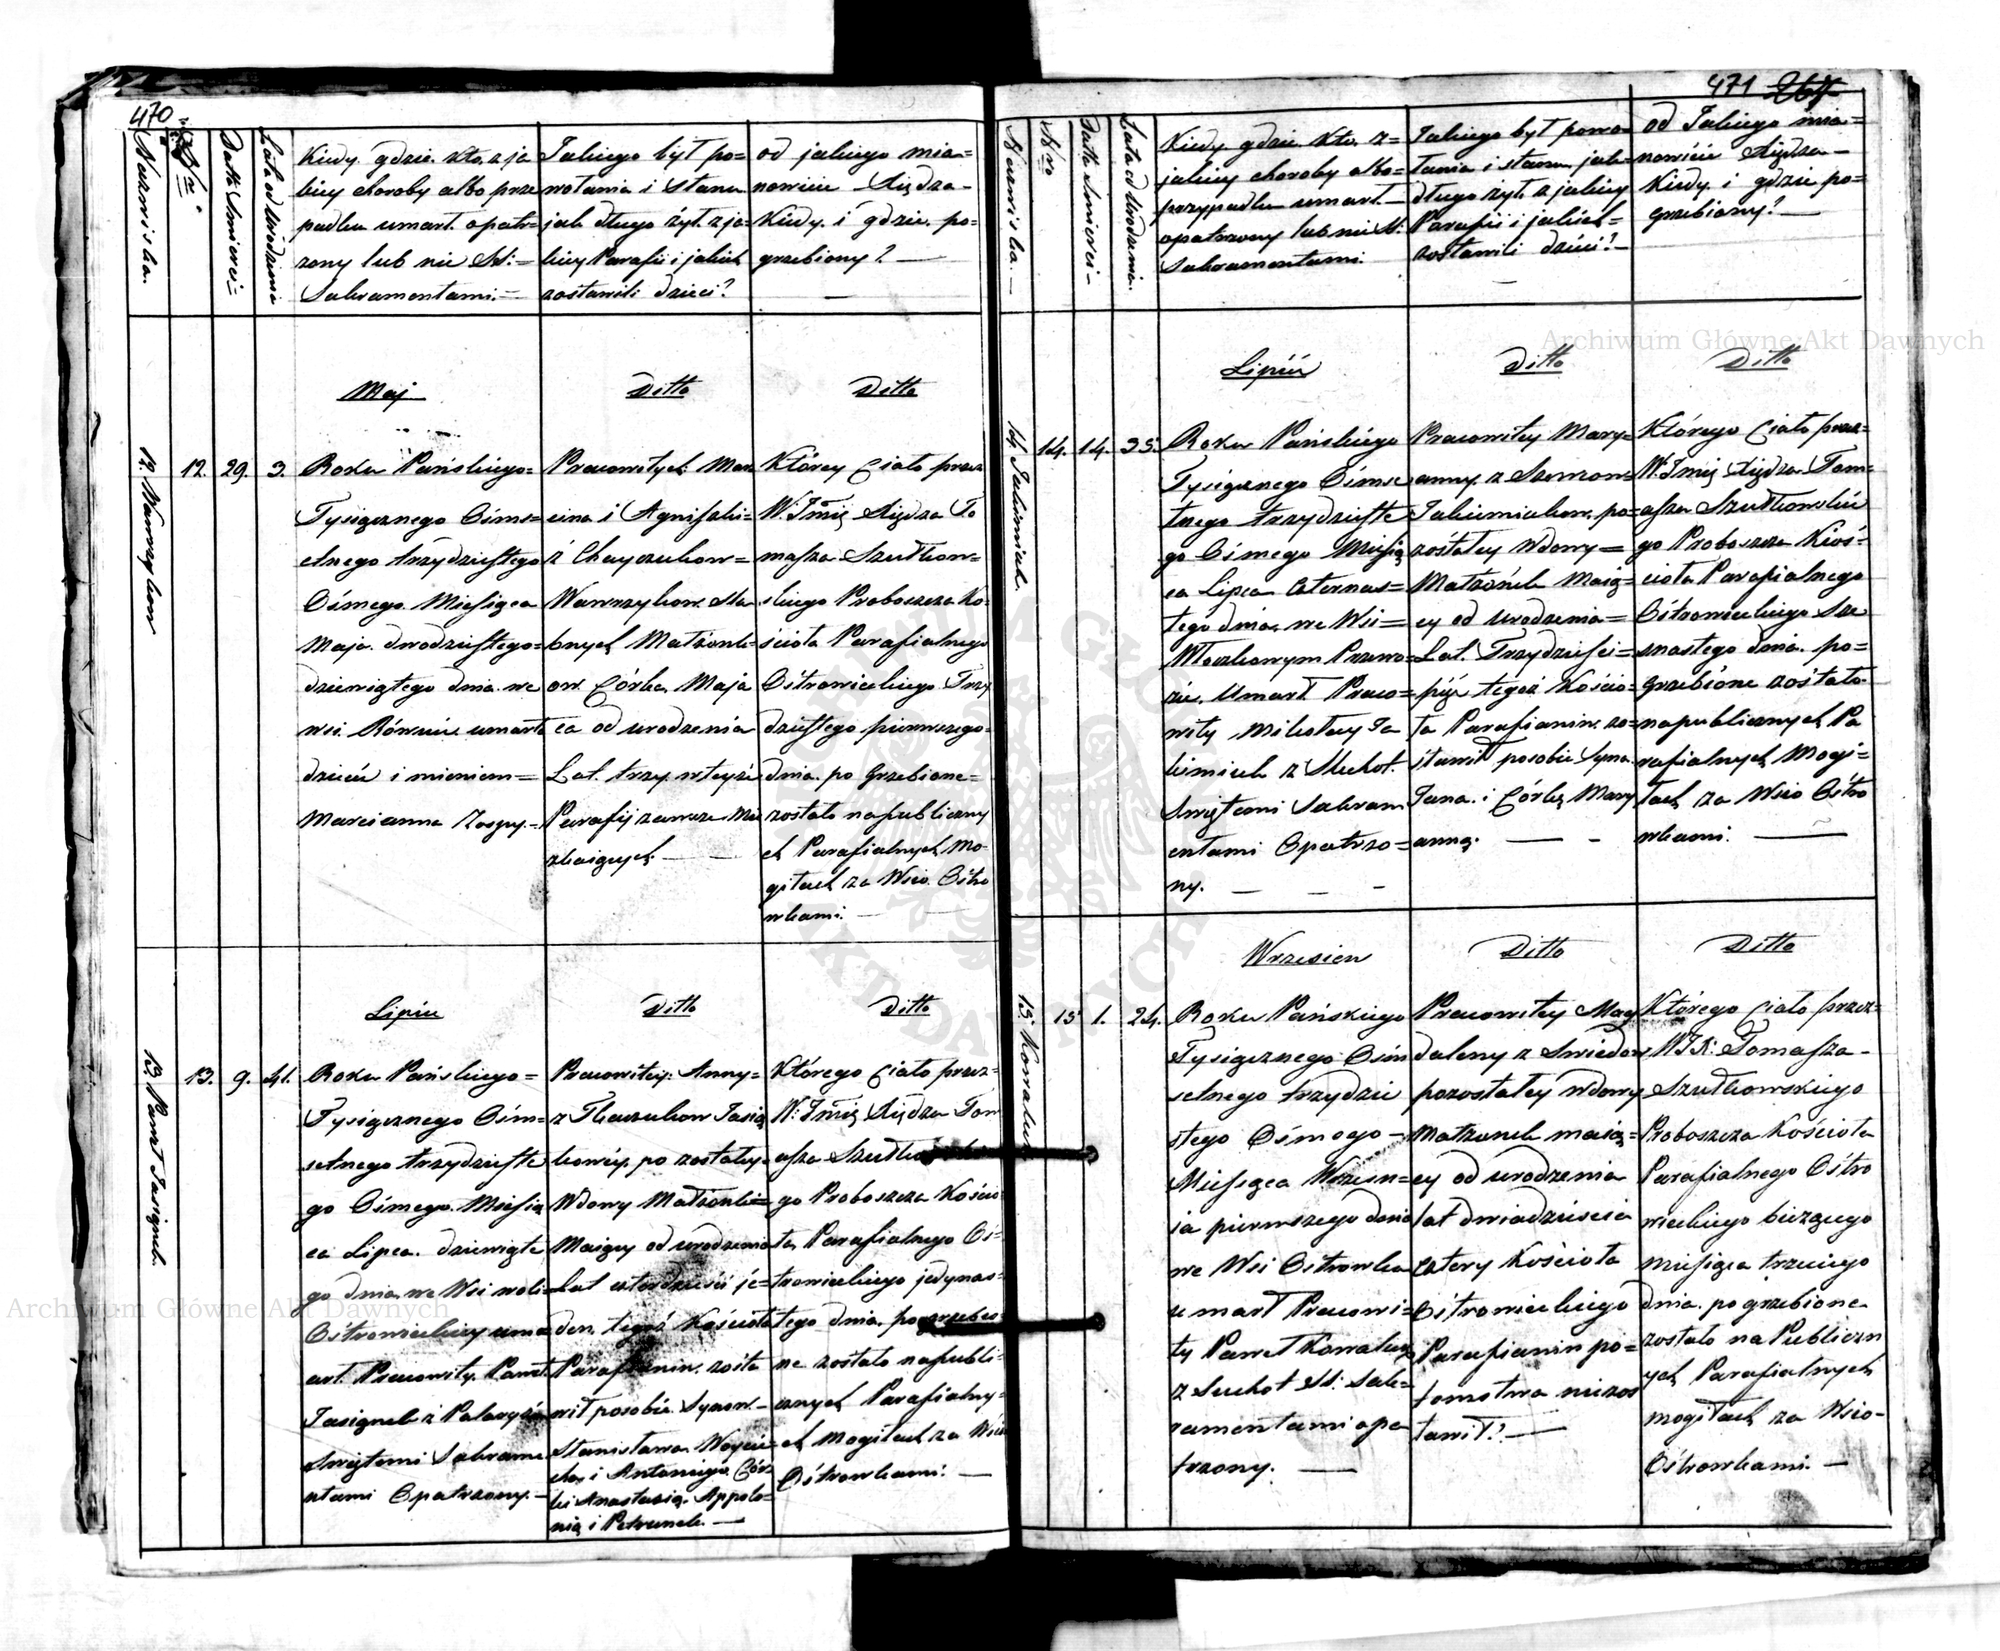 470
Nazwiska.
Nr
Data Śmierci=
Lata od Urodzenia
Kiedy, gdzie, kto, z ja
kiey choroby albo prze
padku umarł. opatr=
zony lub nie SS:=
Sakramentami.=
Jakiego był po=
wołania i stanu
jak długo żył. z ja=
kiey Parafii i jakich
zostawił: dzieci?
od jakiego mia=
nowicie Xiędza=
Kiedy. i gdzie. po=
grzebiony?—
Maj
Ditto
Ditto
12. Wawrzykow
12.
29.
3.
Roku Pańskiego=
Tysiącznego Ośms=
etnego trzydziestego
Ósmego. Miesiąca
Maja. dwodziestego=
dziewiątego dnia. we
wsi. Równie umarło
dziecie imieniem=
Marcianna
Pracowitych Mar
cina i Agniszki=
z Chayczukow=
Wawrzykow. sla
bnych Małżonk=
ow. Córka. Maja
ca od urodzenia
Lat. trzy. w teyże
Parafij zawsze Mie
szkaiących.——
Którey Ciało przez
W: Jmię Xiędza To
masza Szutkow=
skiego Proboszcza Ko=
ścioła Parafialnego
Ostrowieckiego Trzy
dziestego pierwszego=
dnia. po Grzebione=
zostało na publiczny
ch Parafialnych Mo=
giłach za Wsio. Ostro
wkami.—
Lipiec
Ditto
Ditto
13. Paweł Jasionek
13.
9.
41.
Roku Pańskiego=
Tysiącznego Ośm=
setnego trzydzieste
go Ósmego. Miesia
ca Lipca. dziewiąte
go dnia we Wsi woli=
Ostrowieckiey uma
arł. Pracowity. Paweł
Jasionek z
Swiętemi Sakrame
ntami Opatrzony.—
Pracowitey. Anny=
z Tkaczukow Jasią
kowéy. po zostałey=
Wdowy Małżonki=
Maiący od urodzenia
Lat czterdzieści je=
den. tegoż Kościoła
Parafianin. zosta
wił po sobie. Synow.—
Stanisława Woycie=
cha. i Antoniego Cór
ki Anastazią. Appolo=
nią i Petrunele.—
Którego Ciało przez=
W: Jmię Xiędza Tom
asza
go Proboszcza Kościo
ła Parafialnego Os=
trowieckiego jedynas=
tego dnia. pogrzebio
ne zostało na publi=
cznych Parafialny=
ch Mogiłach za Wsio
Ostrowkami:—
471
Nazwiska.—
Nro
Data Śmierci—
Lata od Urodzenia.
Kiedy gdzie. Kto. z=
jakiey choroby albo=
przypadku umarł.—
opatrzony lub nie SS:
Sakramentami.
Jakiego był powo=
łania i stanu. jak=
długo żył. z jakiey
Parafii i jakich=
zostawił: dzieci?—
od Jakiego mia=
nowicie Xiędza—
Kiedy. i gdzie po=
grzebiony?—
Lipiec
Ditto
Ditto
14. Jakimiuk.
14.
14.
35.
Roku Pańskiego
Tysiącznego Ośmse
tnego trzydzieste
go Ósmego Miesią
ca Lipca Czternas=
tego dnia. we Wsi=
Włoczkowym Przewo=
zie. Umarł Praco=
wity Mikołay Ja
kimiuk z Suchot.
Swiętemi Sakram
entami Opatrzo=
ny.———
Pracowitey Mary=
anny. z Szemow=
Jakimiukow. po=
zostałey Wdowy=
Małżonek Maią=
cy od urodzenia=
Lat. Trzydzieści=
pięć tegoż Kościo=
ła Parafianin. zo=
stawił po sobie Syna
Jana. i Córkę Mary
annę.——
Którego Ciało przez=
W: Jmię Xiędza Tom=
asza Szutkowskie
go Proboszcza Koś=
cioła Parafialnego
Ostrowieckiego Sze
snastego dnia. po=
grzebione zostało
na publicznych Pa
rafialnych Mogi=
łach za Wsio Ostro
wkami.——
Wrzesien
Ditto
Ditto
15. Kowaluk
15
1.
24.
Roku Pańskiego
Tysiącznego Ośm
setnego trzydzie
stego Ósmego—
Miesiąca Wrzesn=
ia pierwszego dnia
we Wsi Ostrowka
umarł Pracowi=
ty Paweł Kowaluk
z Suchot SS: Sak=
ramentami opa
trzony.——
Pracowitey Mag
daleny z
pozostałey Wdowy
Małzonek maią=
cy od urodzenia
lat dwiadzieścia
cztery Kościoła
Ostrowieckiego
Parafianin po=
tomstwa nie zos
tawił?—
Którego Ciało przez=
WJX: Tomasza—
Szutkowskiego
Proboszcza Kościoła
Parafialnego Ostro
wieckiego bieżącego
miesiąca trzeciego
dnia. pogrzebione
zostało na Publiczn
ych Parafialnych
mogiłach za Wsio-
Ostrowkami.—
Archiwum Główne Akt Dawnych
Archiwum Główne Akt Dawnych